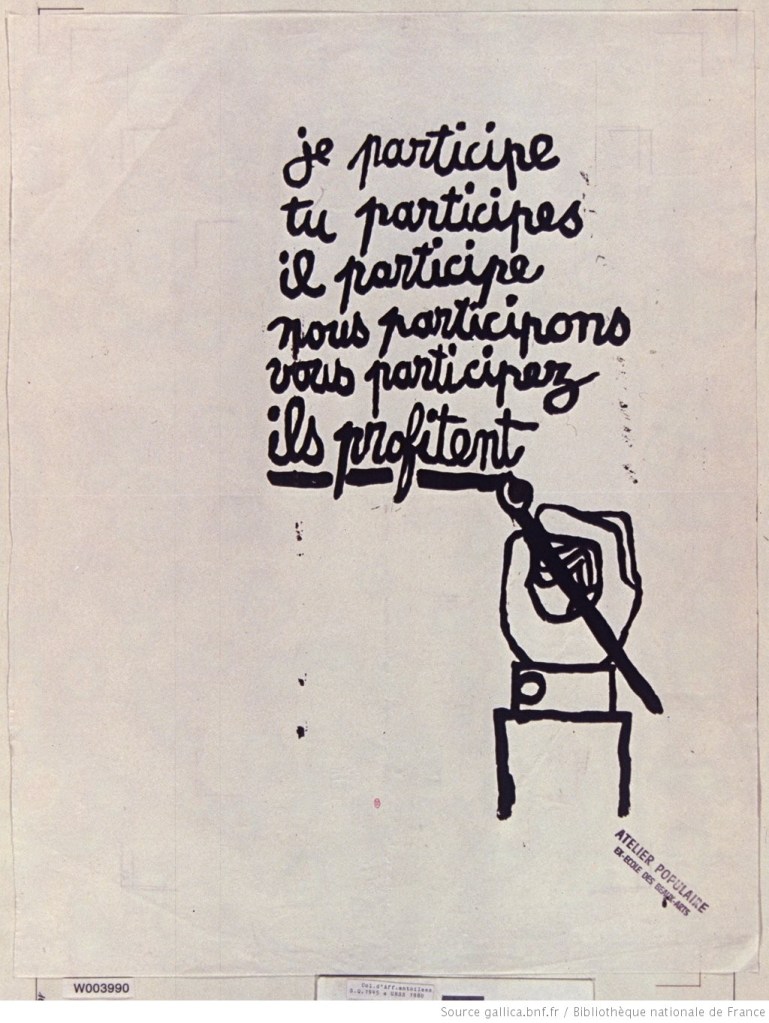 je participe
tu participes
il participe
nous participons
vous participez
ils profitent
ATELIER POPULAIRE
EX-ECOLE DES BEAUX-ARTS
W003990
Source gallica.bnf.fr / Bibliothèque nationale de France